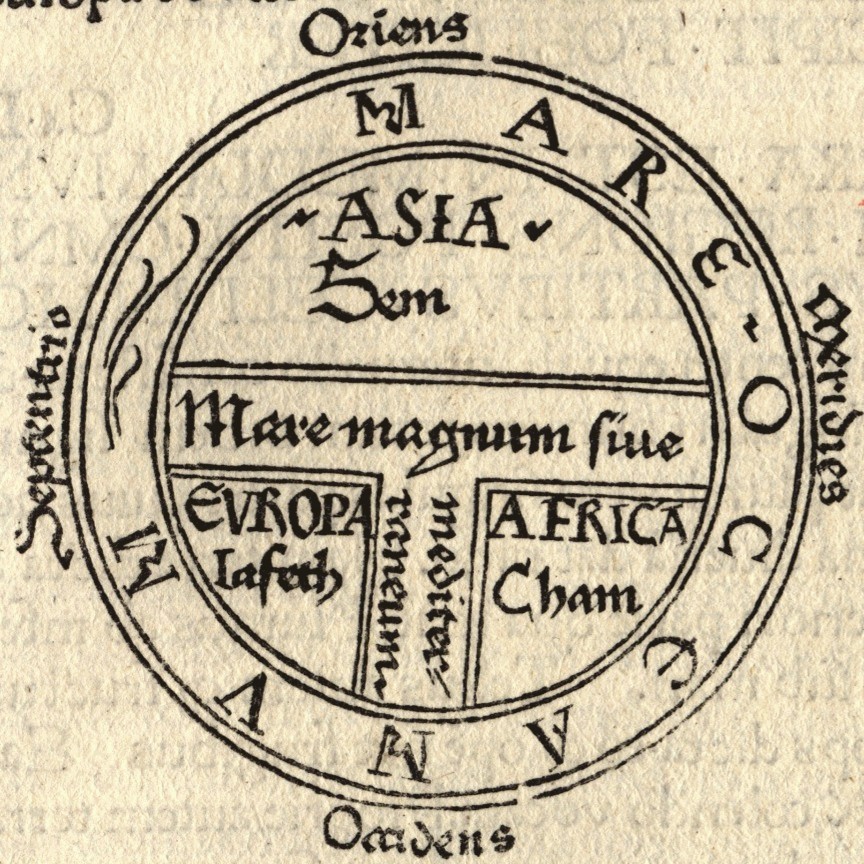 Oriens
MARE~OCEANVM
~ASIA~
Sem
Septentrio
Meridies
Mare magnum ſiue
mediter
raneum
EVROPA
Iafeth
AFRICA
Cham
Occidens